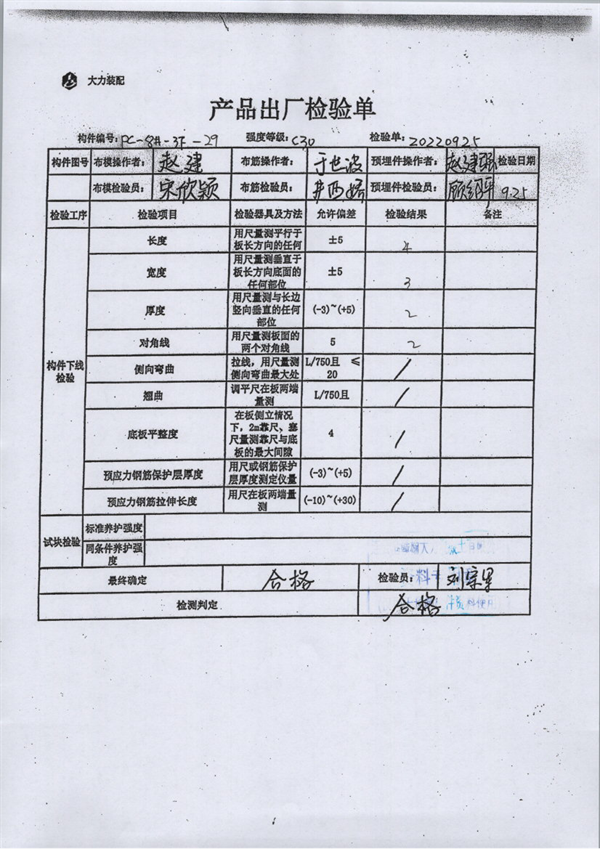 大力装配
产品出厂检验单
构件编号: PC-8#-3F-29 强度等级: C30 检验单: 20220925
构件图号 布模操作者: 赵建 布筋操作者: 于世波 预埋件操作者: 赵建强 检验日期
布模检验员: 宋欣颖 布筋检验员: 预埋件检验员: 9.25
检验工序 检验项目 检验器具及方法 允许偏差 检验结果 备注
构件下线检验
长度 用尺量测平行于板长方向的任何 ±5 4
宽度 用尺量测垂直于板长方向底面的任何部位 ±5 3
厚度 用尺量测与长边竖向垂直的任何部位 (-3)~(+5) 2
对角线 用尺量测板面的两个对角线 5 2
侧向弯曲 拉线，用尺量测侧向弯曲最大处 L/750且 ≤20 /
翘曲 调平尺在板两端量测 L/750且 /
底板平整度 在板侧立情况下，2m靠尺、塞尺量测靠尺与底板的最大间隙 4 /
预应力钢筋保护层厚度 用尺或钢筋保护层厚度测定仪量 (-3)~(+5) /
预应力钢筋拉伸长度 用尺在板两端量测 (-10)~(+30) /
试块检验 标准养护强度
同条件养护强度
最终确定 合格 检验员:
检测判定 合格